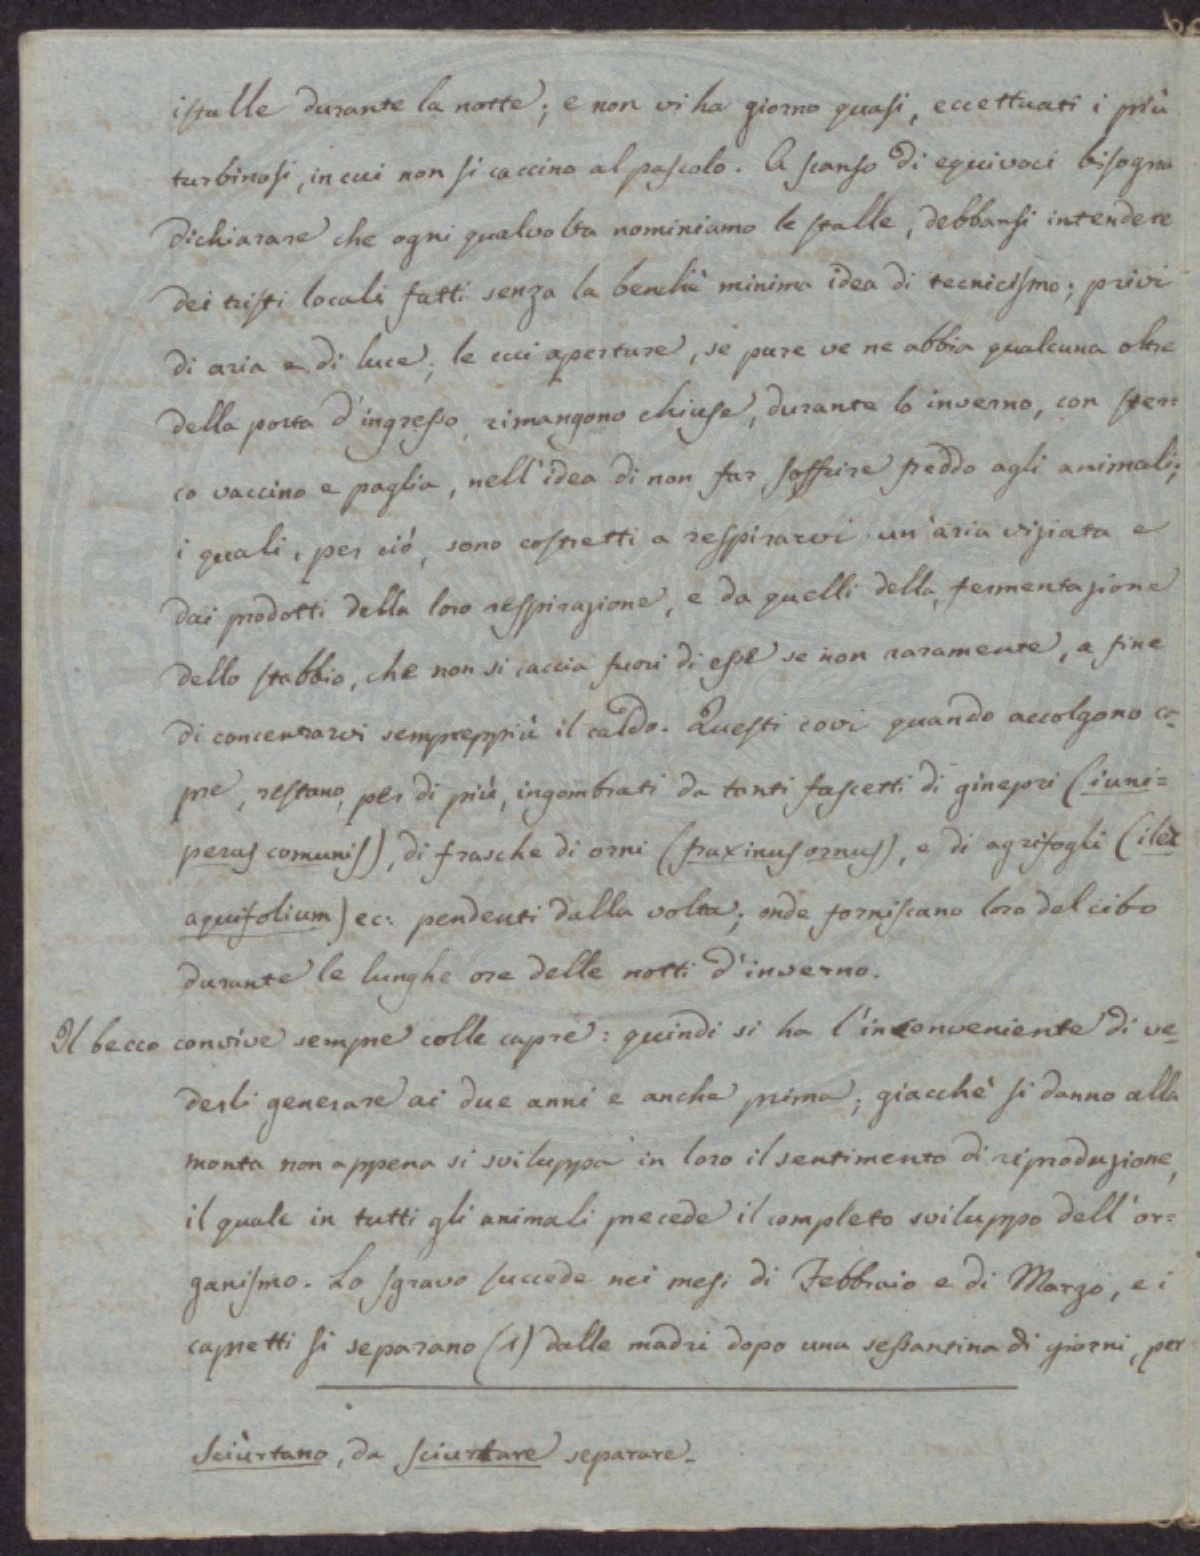 istalle durante la notte; e non vi ha giorno quasi, eccettuati i più
turbinosi, in cui non si caccino al pascolo. A scanso di equivoci bisogna
dichiarare che ogni qualvolta nominiamo le stalle, debbansi intendere
dei tristi locali fatti senza la benchè minima idea di tecnicismo; privi
di aria e di luce; le cui aperture, se pure ve ne abbia qualcuna oltre
della porta d'ingresso, rimangono chiuse, durante lo inverno, con ster=
co vaccino e paglia, nell'idea di non far soffrire freddo agli animali;
i quali, per ciò, sono costretti a respirarvi un'aria viziata e
dai prodotti della loro respirazione, e da quelli della fermentazione
dello stabbio, che non si caccia fuori di esse se non raramente, a fine
di concentrarvi semppeppiù il caldo. Questi covi quando accolgono ca-
pre, restano, per di più, ingombrati da tanti fascetti di ginepri (iuni=
perus comunis), di frasche di orni (fraxinus ornus), e di agrifogli (ilex
aquifolium) ec: pendenti dalla volta; onde forniscano loro del cibo
durante le lunghe ore delle notti d'inverno.
Il becco convive sempre colle capre: quindi si ha l'inconveniente di ve=
derli generare ai due anni e anche prima; giacchè si danno alla
monta non appena si sviluppa in loro il sentimento di riproduzione,
il quale in tutti gli animali precede il completo sviluppo dell'or=
ganismo. Lo sgravo succede nei mesi di Febbraio e di Marzo, e i
capretti si separano (1) dalle madri dopo una sessantina di giorni, per
Sciùrtano, da sciurtare separare.